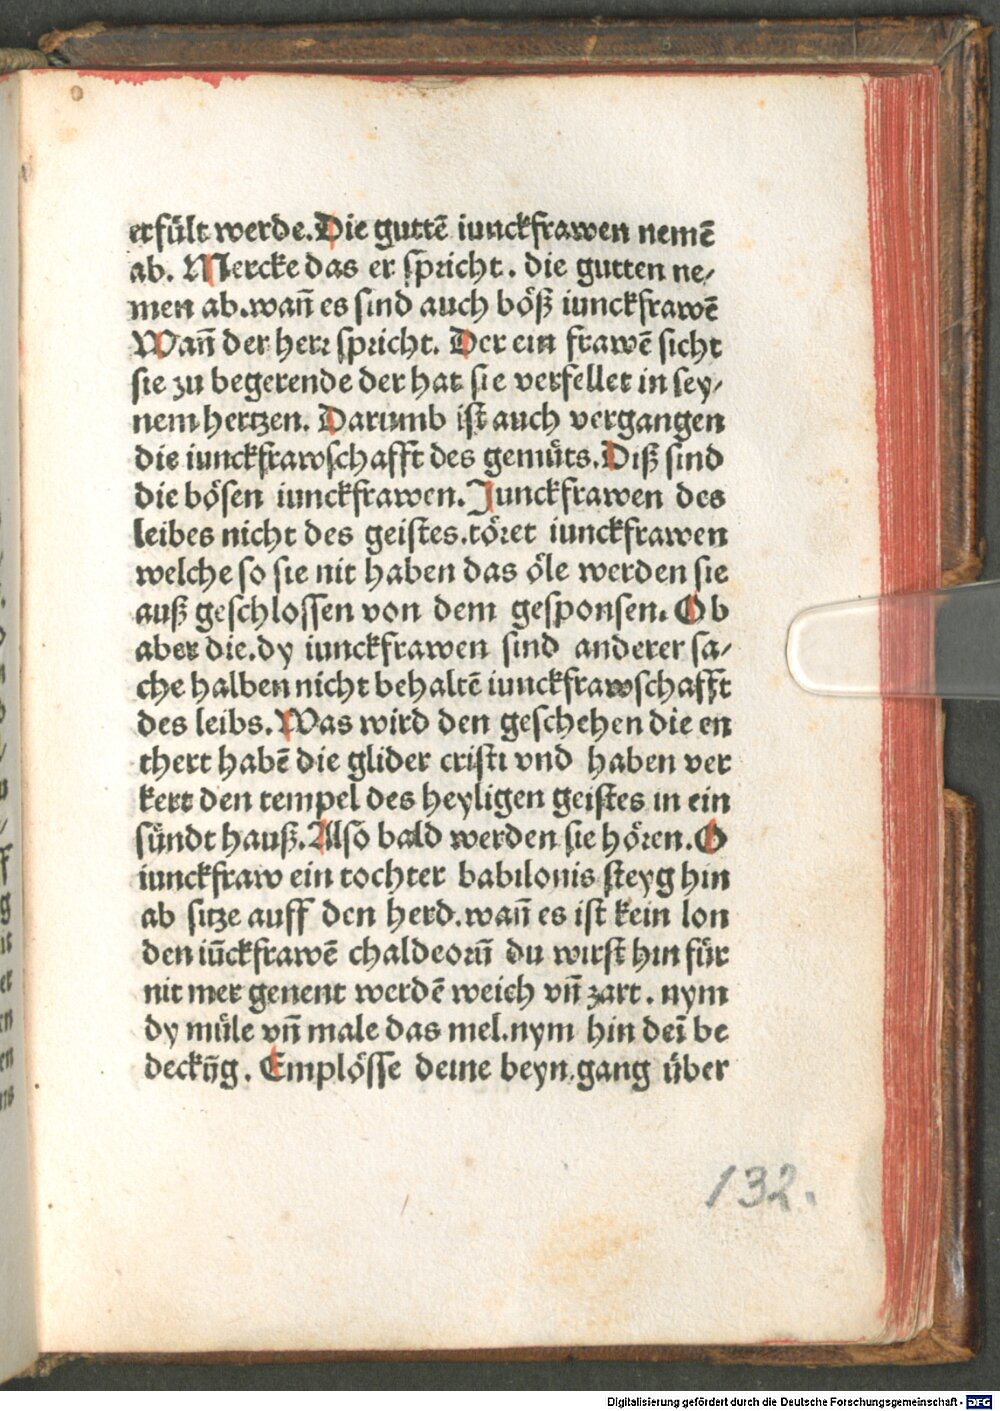 erfült werde. Die guttē iunckfrawen nemē
ab. Mercke das er spricht. die gutten ne/
men ab. wañ es sind auch böß iunckfrawē
Wañ der herr spricht. Der ein frawē sicht
sie zu begerende der hat sie verfellet in sey/
nem hertzen. Darumb ist auch vergangen
die iunckfrawschafft des gemüts. Diß sind
die bösen iunckfrawen. Junckfrawen des
leibes nicht des geistes. töret iunckfrawen
welche so sie nit haben das öle werden sie
auß geschlossen von dem gesponsen. Ob
aber die. dy iunckfrawen sind anderer sa/
che halben nicht behaltē iunckfrawschafft
des leibs. Was wird den geschehen die en
thert habē die glider cristi vnd haben ver
kert den tempel des heyligen geistes in ein
sündt hauß. Also bald werden sie hören. O
iunckfraw ein tochter babilonis steyg hin
ab sitze auff den herd. wañ es ist kein lon
den iūckfrawē chaldeorū du wirst hin für
nit mer genent werdē weich vñ zart. nym
dy müle vñ male das mel. nym hin deī be
deckūg. Emplösse deine beyn. gang über
132.
Digitalisierung gefördert durch die Deutsche Forschungsgemeinschaft - DFG